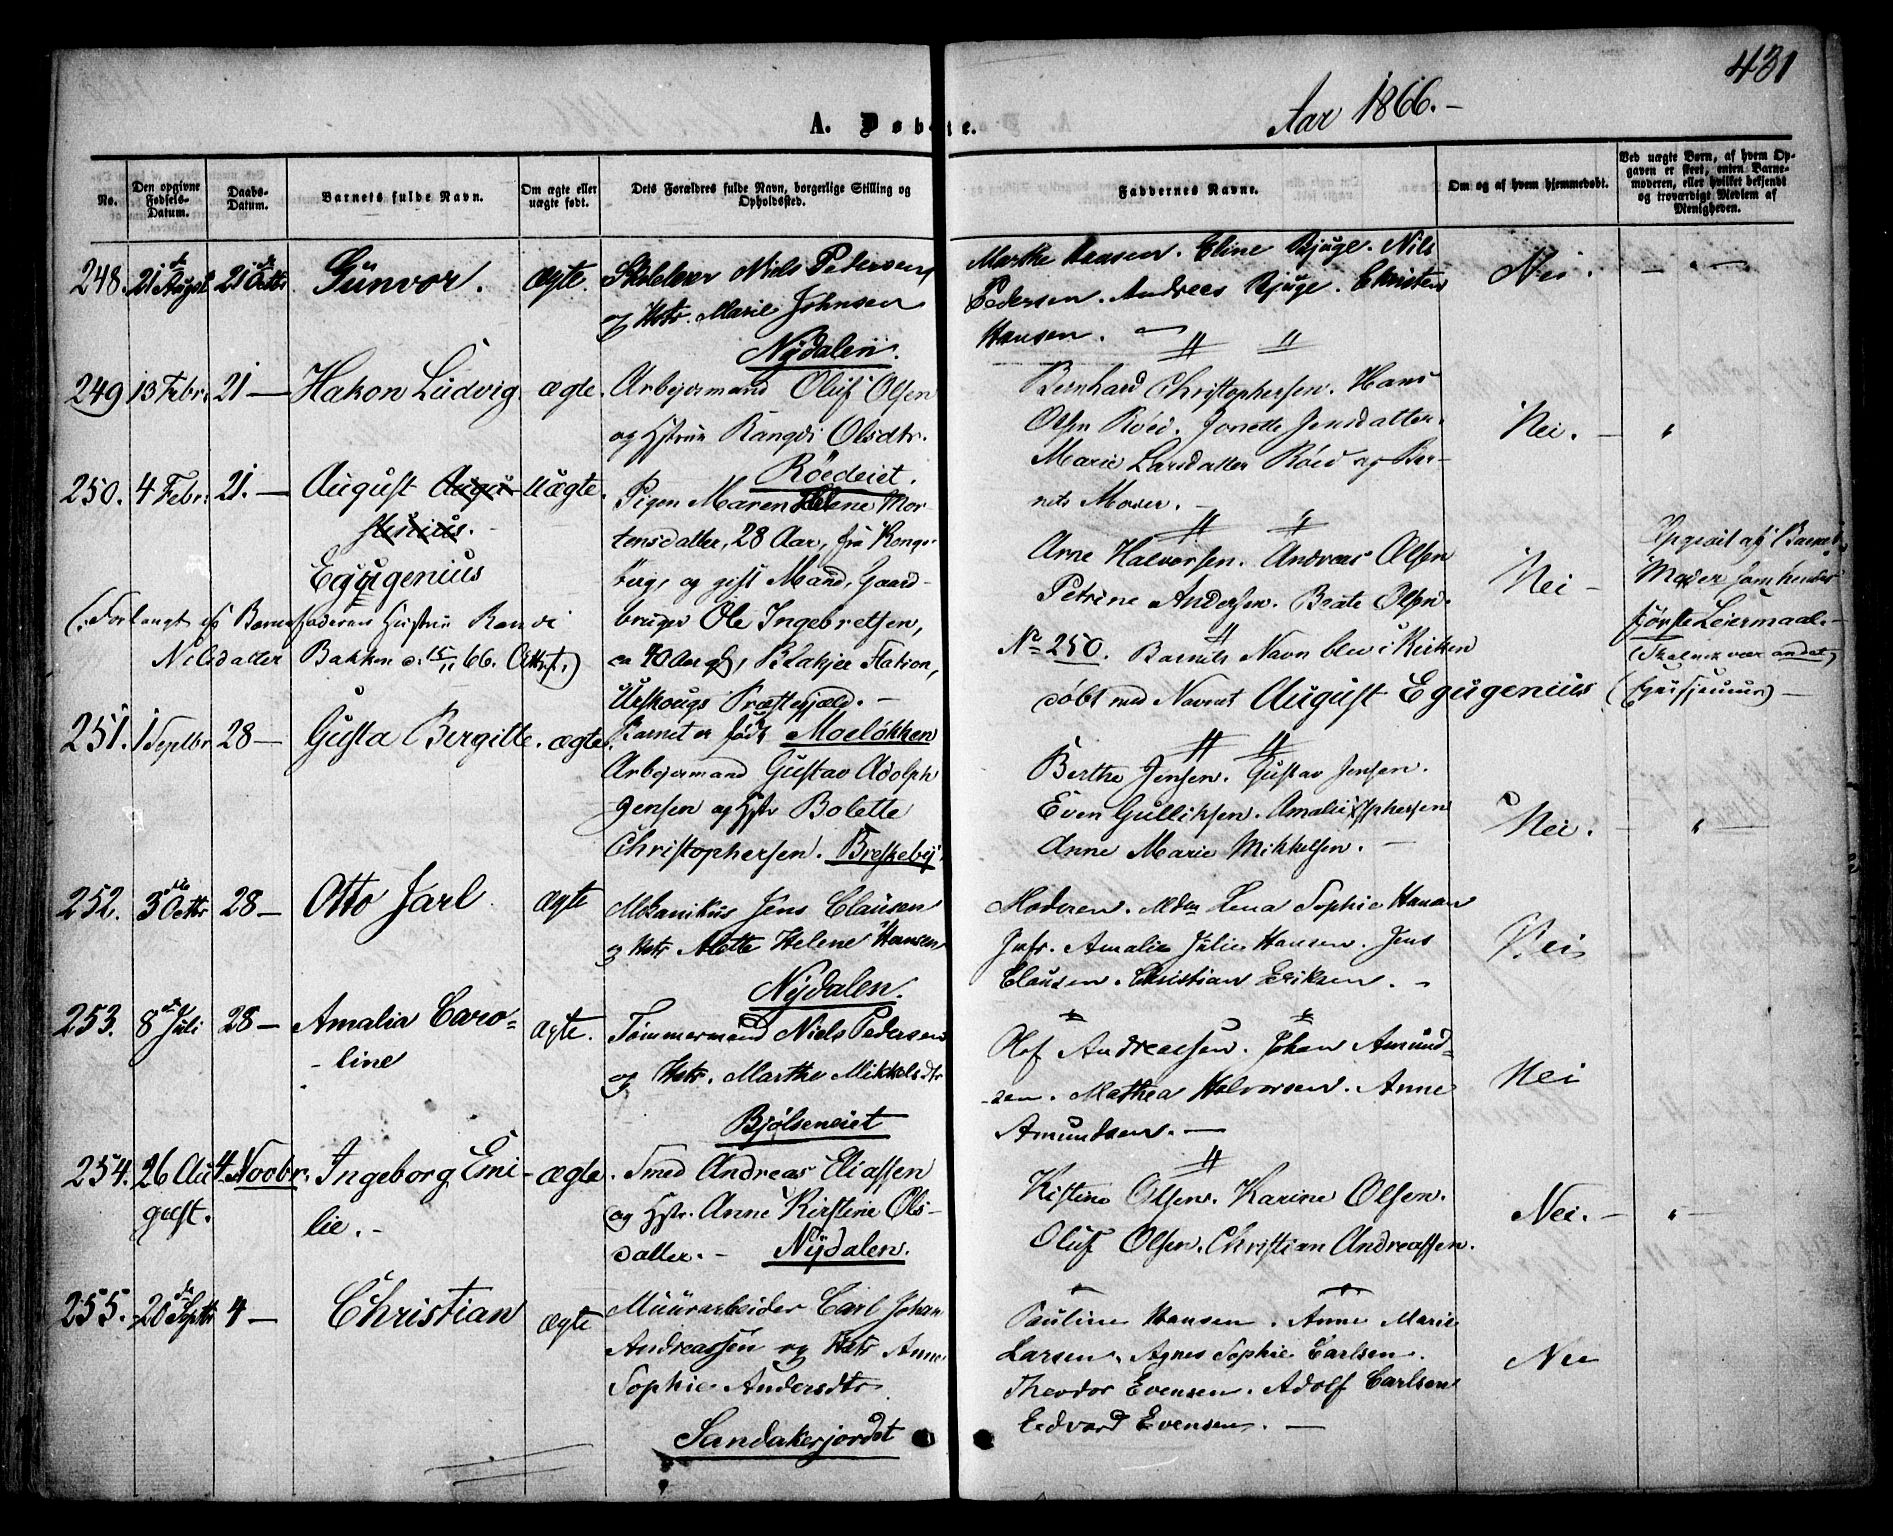 431
Aar 1866.-
A. Døbte.
No.
Den opgivne Fødsels-Datum.
Daabs-Datum.
Barnets fulde Navn.
Om ægte eller uægte født.
Dets Forældres fulde Navn, borgerlige Stilling og Opholdssted.
Faddernes Navne.
Om og af hvem hjemmedøbt.
Ved uægte Børn, af hvem Opgaven er skeet, enten Barnemoderen, eller hvilket bekjendt og troværdigt Medlem af Menigheden.
248. 21 August 21 Octbr Gunvor. ægte. Niels Pedersen
og Hstr. Marie Johnsen
Nydalen.
Marthe Hansen. Eline Bjuge. Nils
Pedersen. Andreas Bjuge. Christen
Hansen.
Nei.
249 13 Febr. 21 — Hakon Ludvig ægte. Arbejdermand Oluf Olsen
og Hstru Rangdi Olsdtr.
Røedeiet.
Bernhard Christophersen. Hans
Olsen Røed. Jonette Jensdatter.
Marie Larsdatter Røed og Bar-
nets Moder.
Nei. —
250. 4 Febr. 21. — August Augu-
stinius.
Egugenius
uægte.
Pigen Maren Helene Mor-
tensdatter, 28 Aar, fra Kongs-
berg, og gift Mand, Gaard-
bruger Ole Ingebretsen,
ca 40 Aar gl, Blakjer Station,
Urskougs Præstegjæld. —
Barnet er født Moeløkken
(:Forlangt af Barnefaderens Hustru Randi
Nilsdatter Bakken d. 15/11 66. Attst.:)
Arne Halvorsen. Andreas Olsen
Petrine Andersen. Beate Olsen.
No 250. Barnets Navn blev i Kirken
døbt med Navnet August Egugenius
Nei —
Opgivet af Barnets
Moder som hendes
første Leiermaal.
(Skal nok være andet)
251. 1 Septbr 28 — Gusta Bergitte. ægte.
Arbejdermand Gustav Adolph
Jensen og Hstr Bolette
Christophersen. Breskeby.
Berthe Jensen. Gustav Jensen.
Even Gulliksen. Amalie Xstphersen
Anne Marie Mikkelsen. —
Nei. —
252. 3 Octbr 28 — Otto Jarl ægte
Mekanikus Jens Clausen
og Hstr Mette Helene Hansen
Nydalen.
Moderen. Mdm Lena Sophie Hansen
Jnfr. Amalie Julie Hansen. Jens
Clausen. Christian Eriksen.
Nei
253. 8 Juli 28 — Amalia Caro-
-line
ægte.
Tømmermand Niels Pedersen
og Hstr. Marthe Mikkelsdtr
Bjølseneiet
Olof Andreassen. Johan Amund-
sen. Mathea Halvorsen. Anne
Amundsen. —
Nei
254. 26 Au-
gust.
4 Novbr. Ingeborg Emi-
lie. -
ægte. Smed Andreas Eliassen
og Hstr. Anne Kirstine Ols-
datter. — Nydalen.
Kistine Olsen. Karine Olsen.
Oluf Olsen. Christian Andreassen.
Nei. —
255. 20 Septbr 4 — Christian ægte
Muurarbeider Carl Johan
Andreassen og Hstr Anne
Sophie Andersdtr
Sandakerjordet
Pauline Hansen. Anne Marie
Larsen. Agnes Sophie Carlsen.
Theodor Evensen. Adolf Carlsen
Edvard Evensen. —
Nei